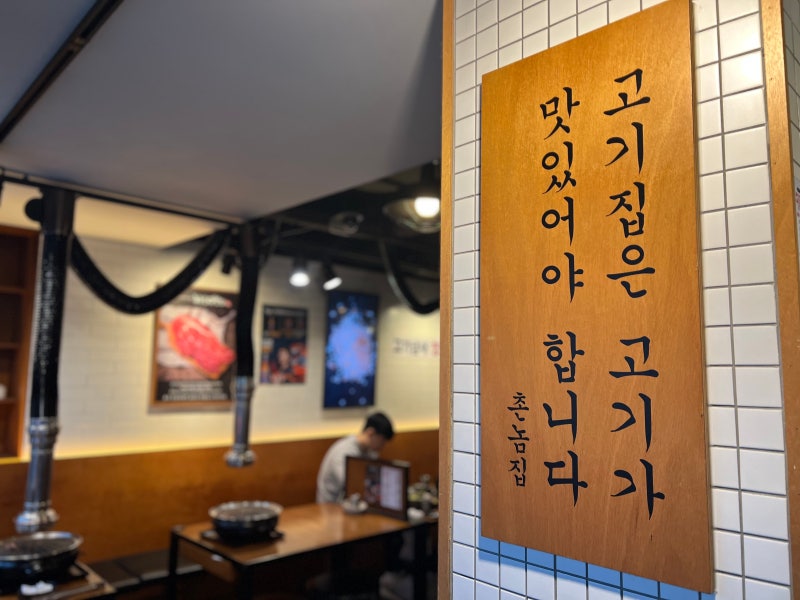 고기집은 고기가
맛있어야 합니다
촌놈집